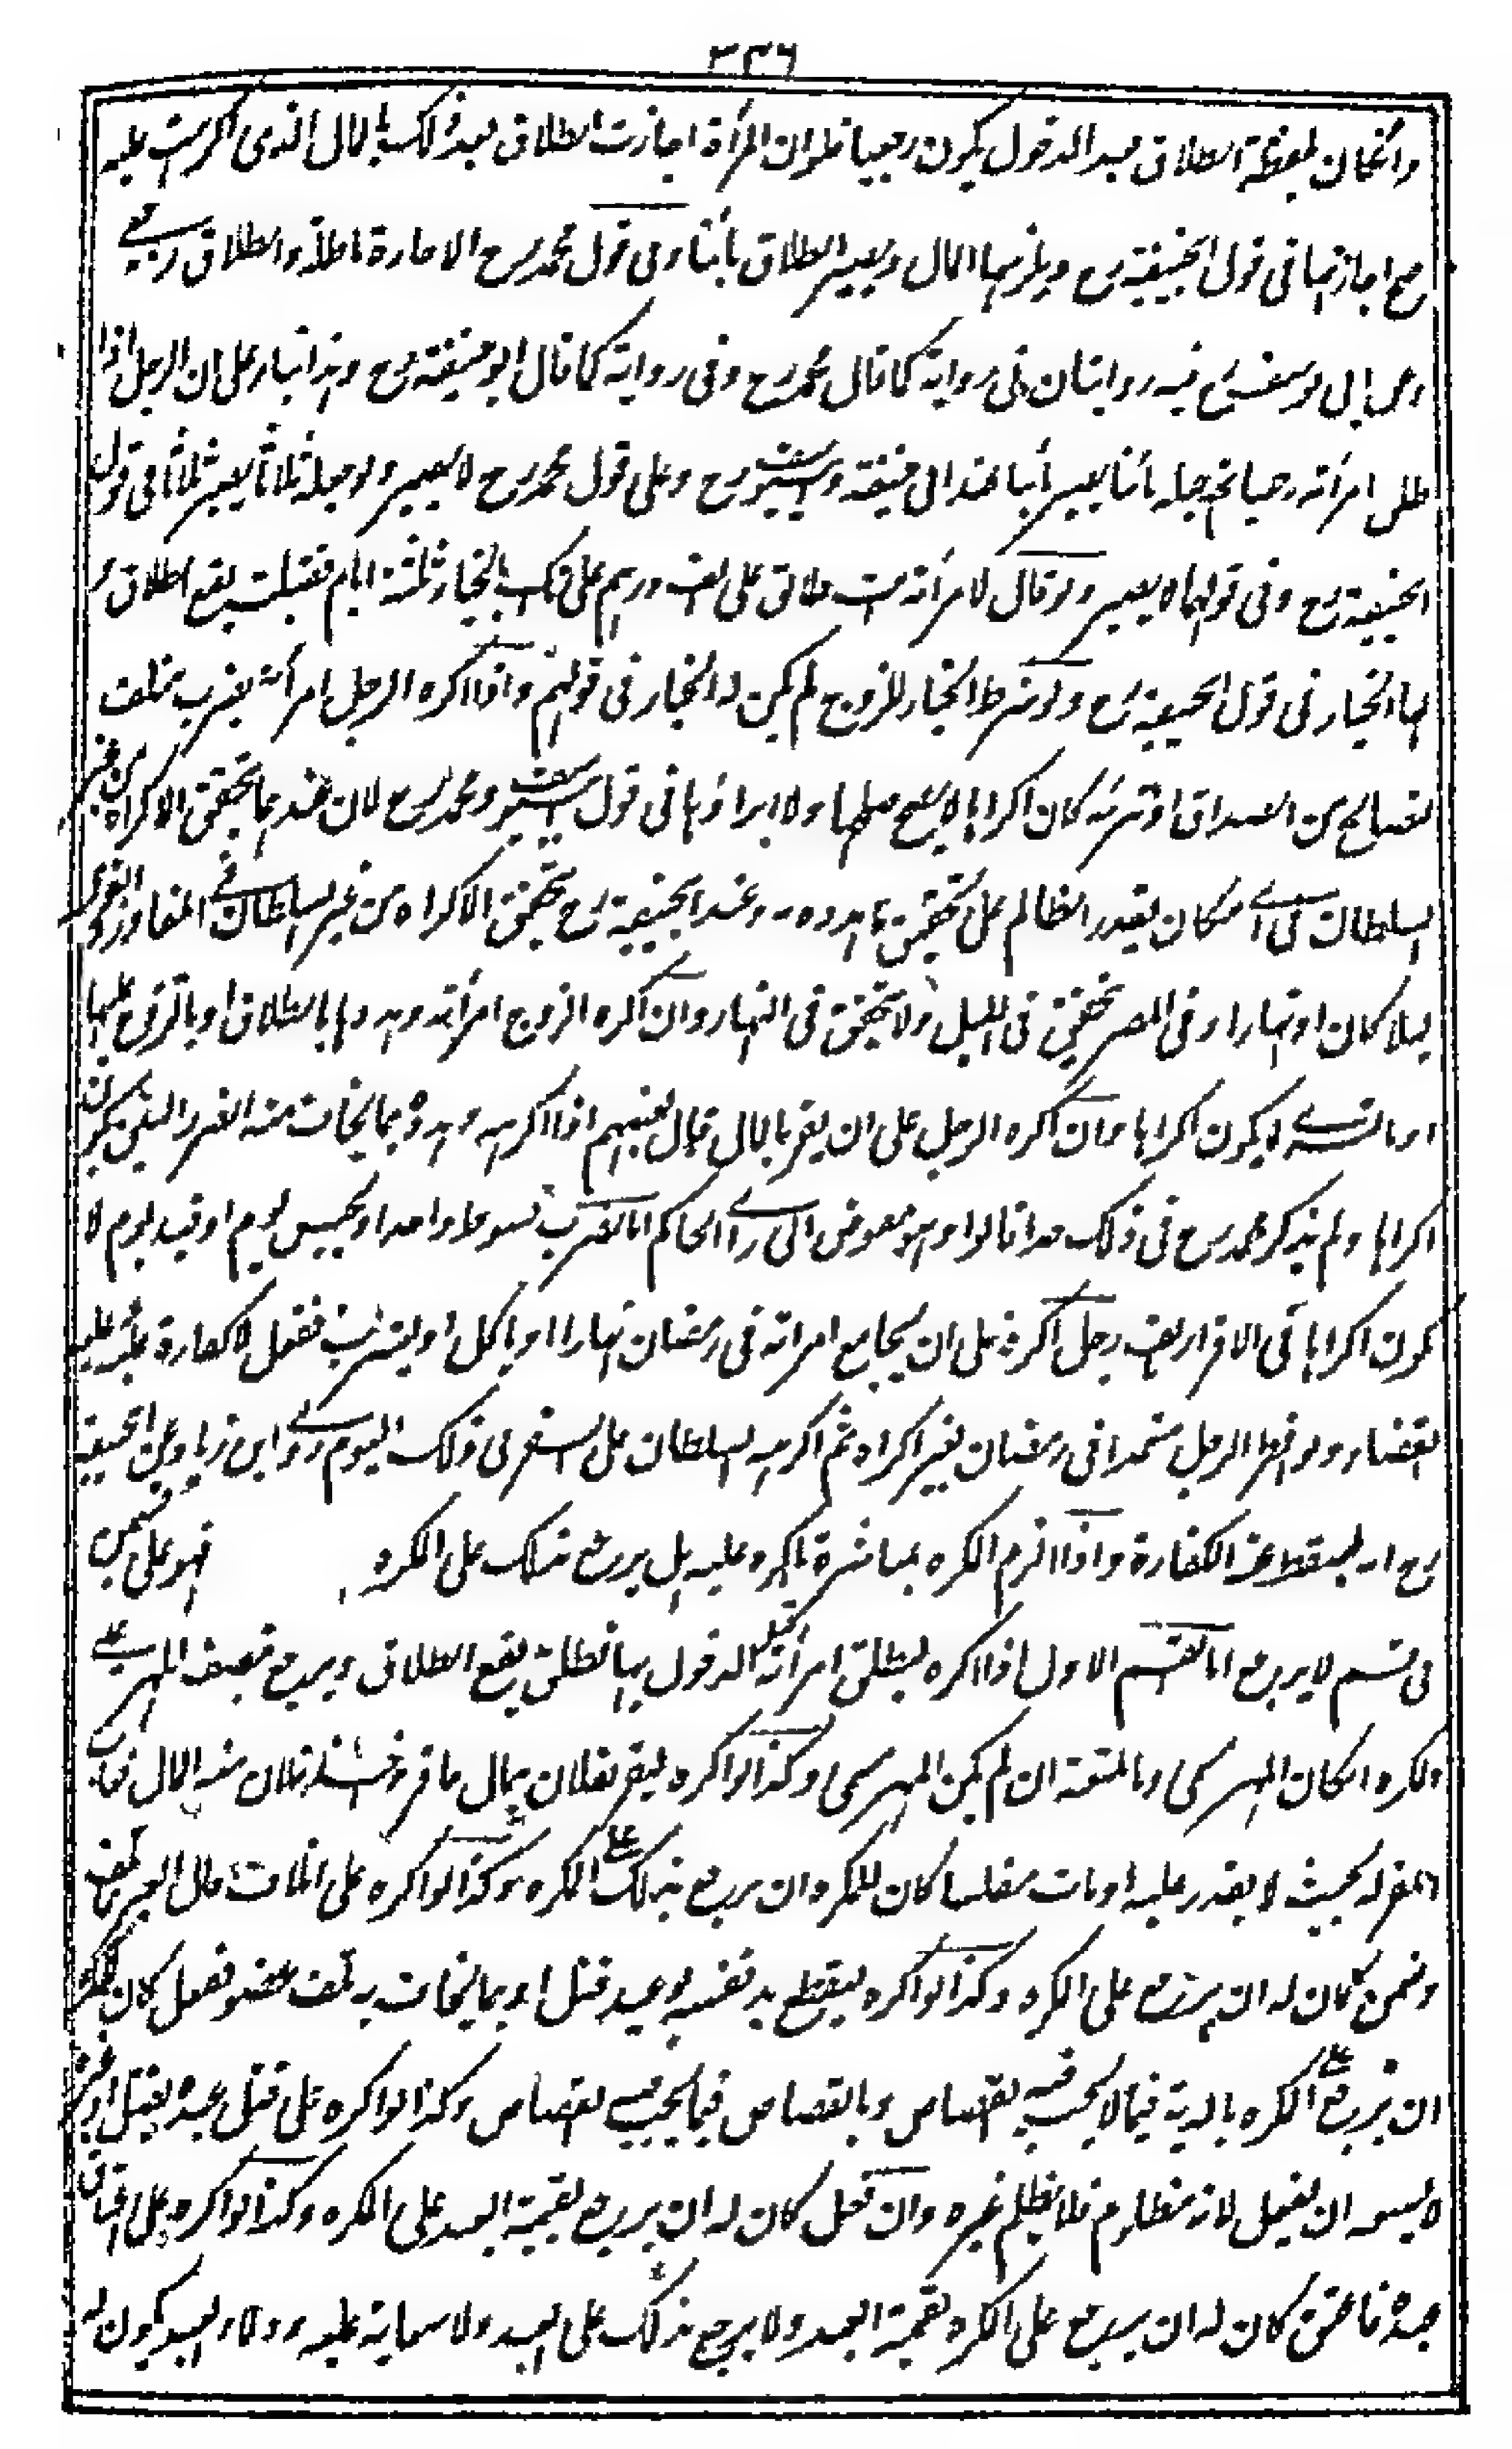 ٣٣٦
وانكان بلفظة الطلاق بعد الدخول يكون رجعيا فلو ان المرأة اجازت الطلاق بعد ذلك بالمال الذى اكرهت عليه
صح اجازتها فى قول ابيحنيفة رح ويلزمها المال ويصير الطلاق بائنا وفى قول محمد رح الاجازة باطلة والطلاق رجعي
وعن ابى يوسف رح فيه روايتان فى رواية كما قال محمد رح وفى رواية كما قال ابو حنيفة رح وهذا بناء على ان الرجل اذا
طلق امرأته رجعيا ثم جعله بائنا يصير بائنا عند ابى حنيفة وابي يوسف رح وعلى قول محمد رح لا يصير ولو جعله ثلاثا يصير ثلاثا فى قول
ابيحنيفة رح وفى قولهما لا يصير ولو قال لامرأته انت طالق على الف درهم على انك بالخيار ثلثة ايام فقبلت يقع الطلاق و
لها الخيار فى قول ابيحنيفة رح ولو شرط الخيار للزوج لم يكن له الخيار فى قولهم واذا اكره الرجل امرأته بضرب متلف
لتصالح من الصداق او تبرئه كان اكراها لا يصح صلحها ولا ابراؤها فى قول ابي يوسف ومحمد رح لان عندهما يتحقق الاكراه من غير
السلطان فى اى مكان يقدر الظالم على تحقيق ما هدده به وعند ابيحنيفة رح يتحقق الاكراه من غير السلطان في المفاوز والقرى
ليلا كان او نهارا وفى المصر يتحقق فى الليل ولا يتحقق فى النهار وان اكره الزوج امرأته وهددها بالطلاق او بالتزوج عليها
او بالتسري لا يكون اكراها وان اكره الرجل على ان يقر بالمال قال بعضهم اذا اكرهه وهدده بما يخاف منه الضرر البين يكون
اكراها ولم يذكر محمد رح فى ذلك حدا قالوا وهو مفوض الى رأي الحاكم اما الضرب بسوط واحد او بحبس يوم او قيد يوم لا
يكون اكراها فى الاقرار بالف رجل اكره على ان يجامع امرأته فى رمضان نهارا او ياكل او يشرب ففعل لا كفارة عليه وعليه
القضاء ولو افطر الرجل متعمدا فى رمضان بغير اكراه ثم اكرهه السلطان على السفر فى ذلك اليوم روي ابن زياد عن ابيحنيفة
رح انه لا يسقط عنه الكفارة واذا لزم المكره بمباشرة ما اكره عليه هل يرجع بذلك على المكره فهو على قسمين
فى قسم لا يرجع اما القسم الاول اذا اكره ليطلق امرأته قبل الدخول بها فطلق يقع الطلاق ويرجع بنصف المهر علي
المكره انكان المهر مسمى وبالمتعة ان لم يكن المهر مسمى وكذا لو اكره ليقر لفلان بمال فاقر فاخذ فلان منه المال فغاب
المقر له بحيث لا يقدر عليه او مات مفلسا كان للمكره ان يرجع بذلك على المكره وكذا لو اكره على اتلاف مال الغير فاتلفه
وضمن كان له ان يرجع على المكره وكذا لو اكره ليقطع يد نفسه بوعيد قتل او بما يخاف به تلف عضو ففعل كان للمكره
ان يرجع على المكره بالدية فيما لا يجب فيه القصاص وبالقصاص فيما يجب فيه القصاص وكذا لو اكره على قتل عبده بقتل او غيره
لا يسعه ان يفعل لانه مظلوم فلا يظلم غيره وان فعل كان له ان يرجع بقيمة العبد على المكره وكذا لو اكره على اعتاق
عبده فاعتق كان له ان يرجع على المكره بقيمة العبد ولا يرجع بذلك على العبد ولا سعاية عليه وولاء العبد يكون له